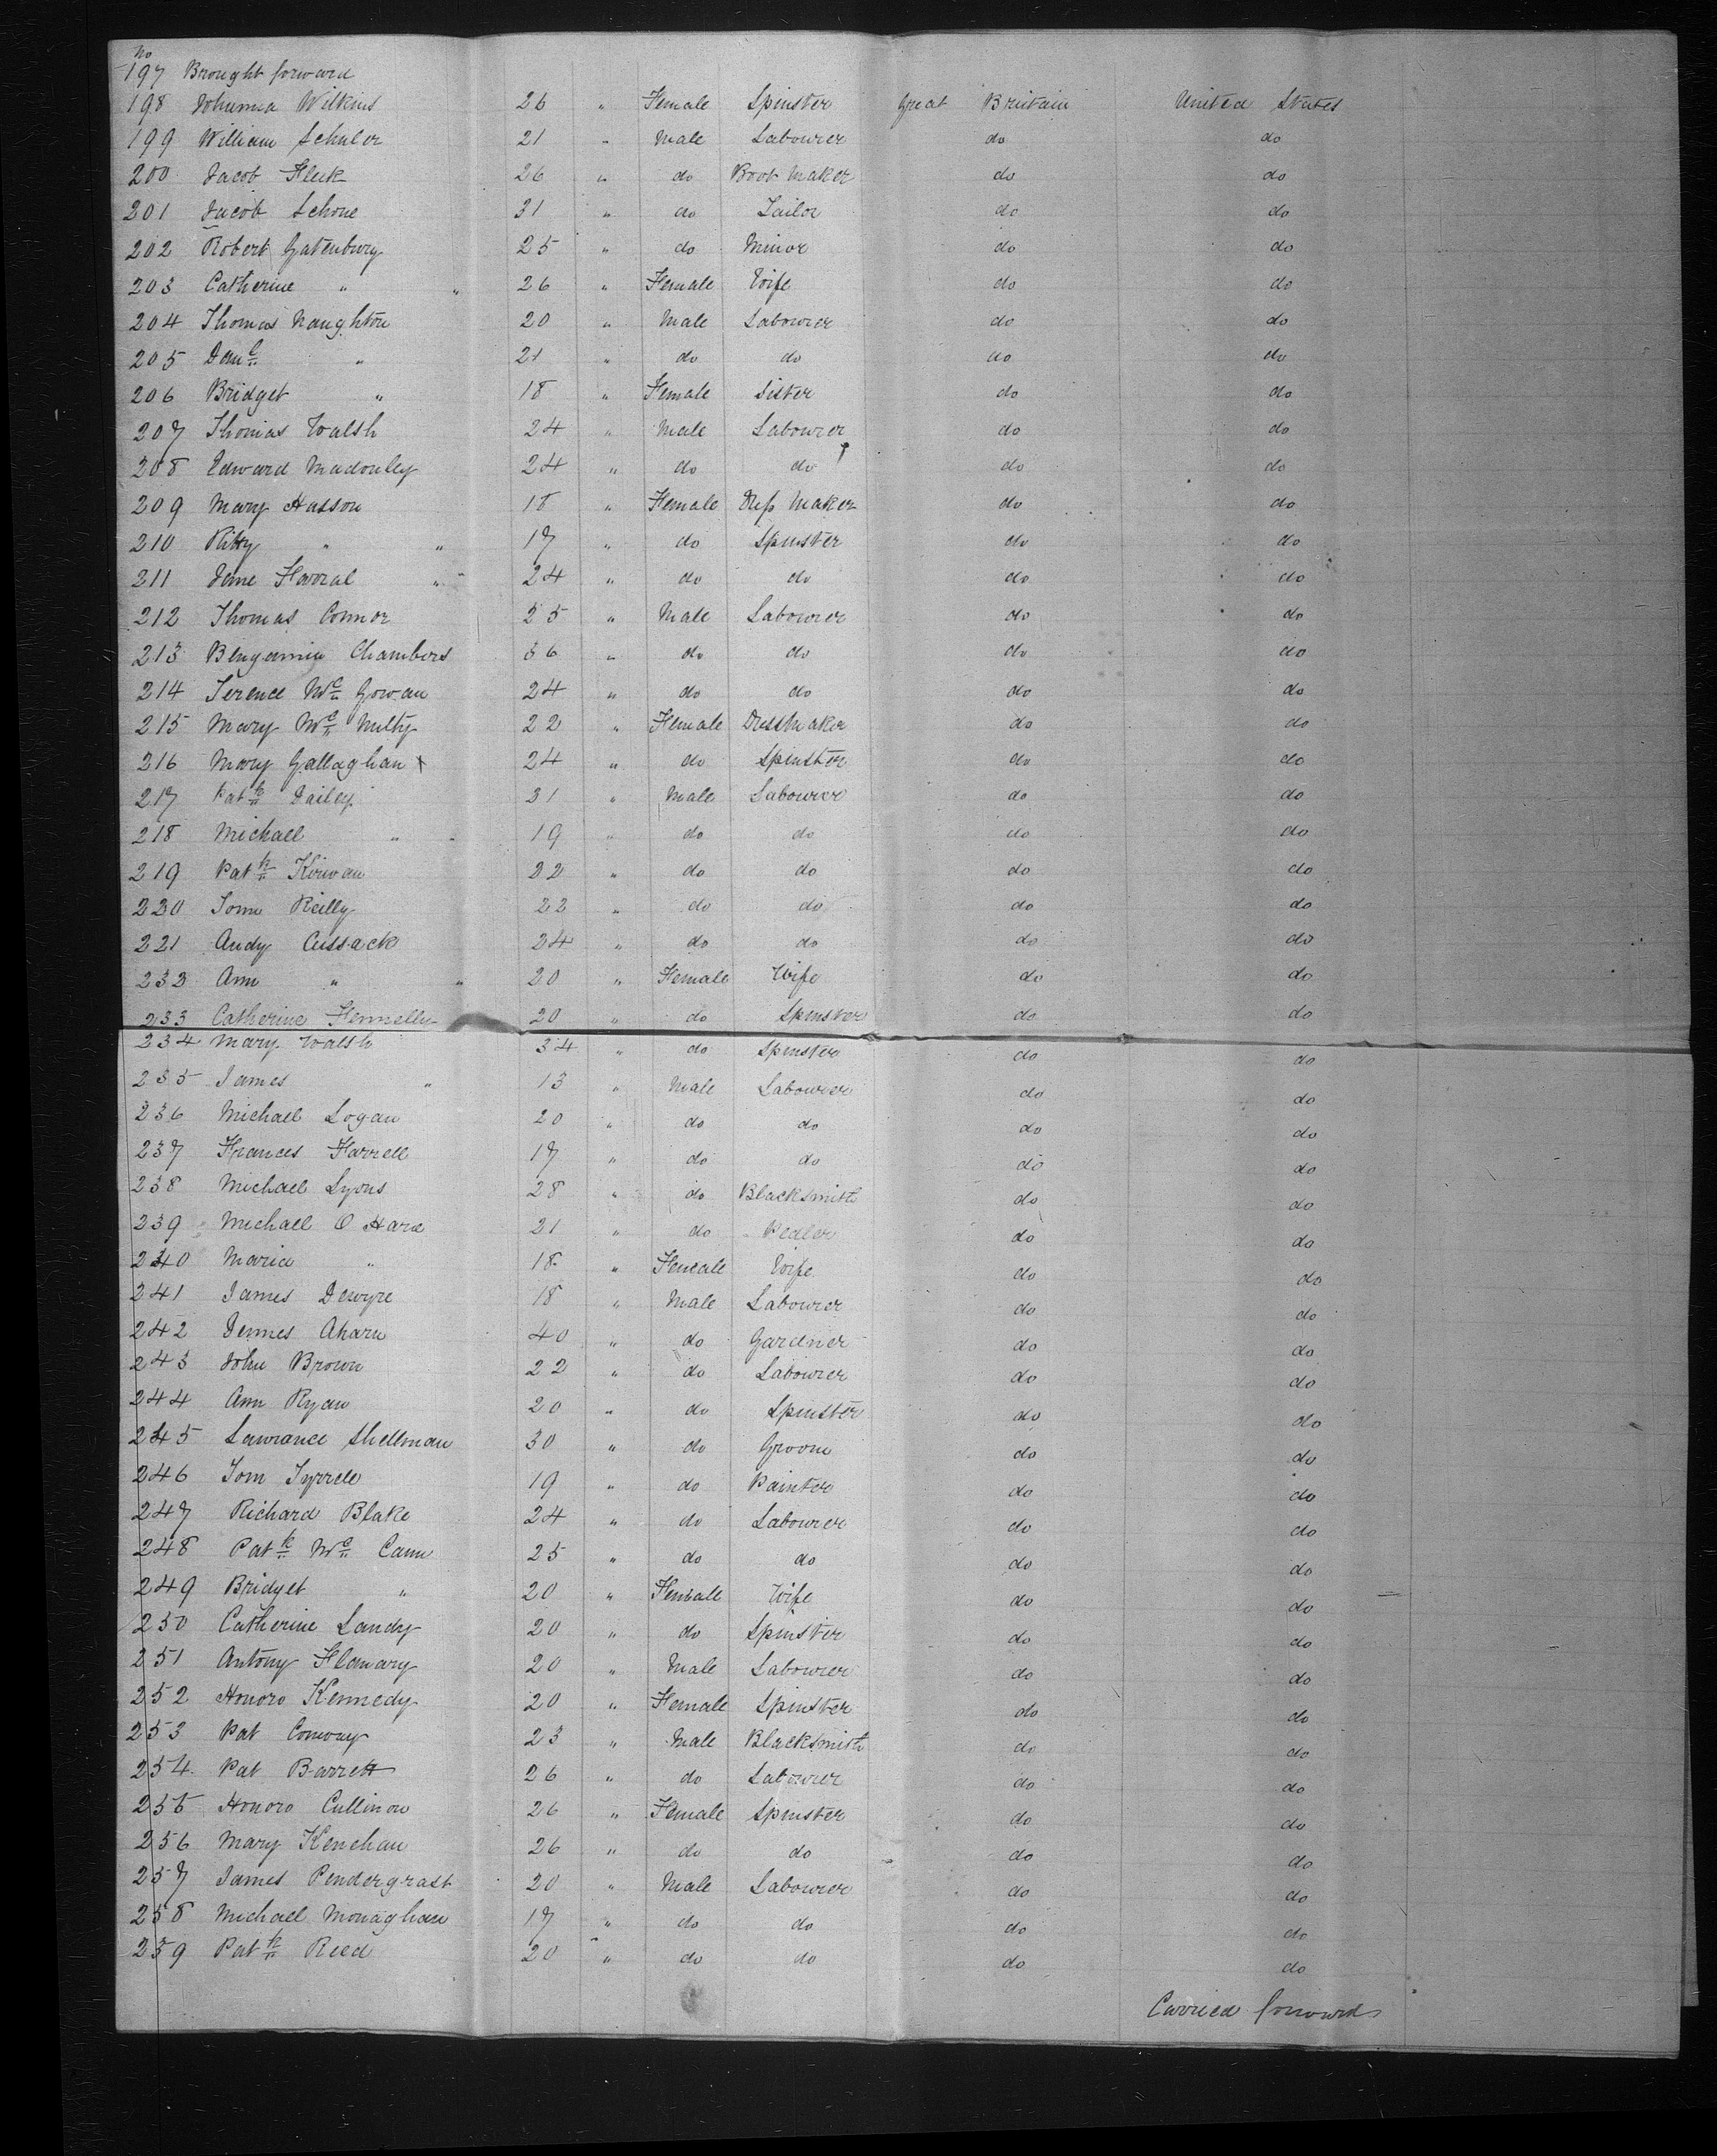 No
197 Brought forward
198 Johanna Wilkins 26 " Female Spinster Great Britain United States
199 William Schuler 21 " Male Labourer do do
200 Jacob Fluk 26 " do Boot Maker do do
201 Jacob Schone 31 " do Tailor do do
202 Robert Gatenbury 25 " do Minor do do
203 Catherine " " 26 " Female Wife do do
204 Thomas Naughton 20 " Male Labourer do do
205 Danl " 21 " do do do do
206 Bridget " 18 " Female Sister do do
207 Thomas Walsh 24 " Male Labourer do do
208 Edward Madonley 24 " do do do do
209 Mary Hasson 18 " Female Dress Maker do do
210 Kitty " " 17 " do Spinster do do
211 Jane Harral " 24 " do do do do
212 Thomas Connor 25 " Male Labourer do do
213 Bengamin Chambers 36 " do do do do
214 Terence Mc Gowan 24 " do do do do
215 Mary Mc Nulty 22 " Female Dressmaker do do
216 Mary Gallaghan 24 " do Spinster do do
217 Patk Dailey 31 " Male Labourer do do
218 Michael " 19 " do do do do
219 Patk Kirwan 22 " do do do do
220 Tom Reilly 22 " do do do do
221 Andy Cussack 24 " do do do do
232 Ann " " 20 " Female Wife do do
233 Catherine Fennelly 20 " do Spinster do do
234 Mary Walsh 34 " do Spinster do do
235 James " 13 " Male Labourer do do
236 Michael Logan 20 " do do do do
237 Frances Farrell 17 " do do do do
238 Michael Lyons 28 " do Blacksmith do do
239 Michael O Hara 21 " do Pedler do do
240 Maria " 18 " Female Wife do do
241 James Dewyre 18 " Male Labourer do do
242 Dennes Aharn 40 " do Gardner do do
243 John Brown 22 " do Labourer do do
244 Ann Ryan 20 " do Spinster do do
245 Lawrance Shellman 30 " do Groom do do
246 Tom Tyrrell 19 " do Painter do do
247 Richard Blake 24 " do Labourer do do
248 Patk Mc Cann 25 " do do do do
249 Bridget " 20 " Female Wife do do
250 Catherine Landy 20 " do Spinster do do
251 Antony Flanary 20 " Male Labourer do do
252 Honoro Kennedy 20 " Female Spinster do do
253 Pat Conway 23 " Male Blacksmith do do
254 Pat Barrett 26 " do Labourer do do
255 Honoro Cullinow 26 " Female Spinster do do
256 Mary Kenehan 26 " do do do do
257 James Pendergrast 20 " Male Labourer do do
258 Michael Monaghan 17 " do do do do
259 Patk Reed 20 " do do do do
Carried forward